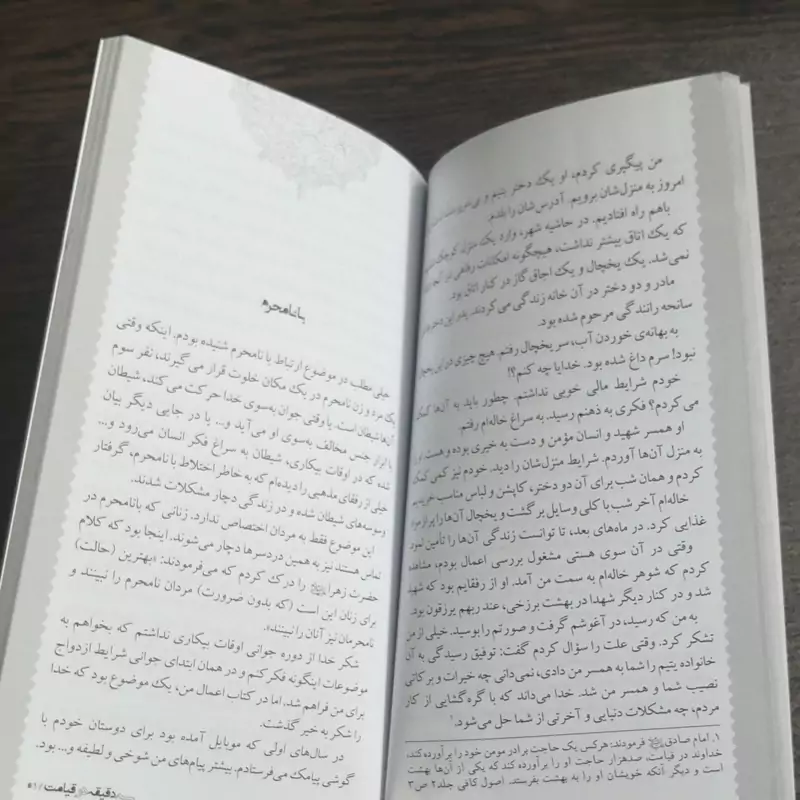 من پیگیری کردم، او یک دختر یتیم و بی
امروز به منزل‌شان برویم. آدرس‌شان را بلدم.
باهم راه افتادیم. در حاشیه شهر، وارد یک منزل کوچک شدیم
که یک اتاق بیشتر نداشت، هیچگونه امکانات رفاهی در آنجا
نمی‌شد. یک یخچال و یک اجاق گاز در کنار اتاق بود.
مادر و دو دختر در آن خانه زندگی می‌کردند. پدر این دخترها در
سانحه رانندگی مرحوم شده بود.
به بهانه‌ی خوردن آب، سر یخچال رفتم. هیچ چیزی در این یخچال
نبود! سرم داغ شده بود. خدایا چه کنم؟!
خودم شرایط مالی خوبی نداشتم. چطور باید به آن‌ها کمک
می کردم؟ فکری به ذهنم رسید. به سراغ خاله‌ام رفتم.
او همسر شهید و انسان مؤمن و دست به خیری بوده و هست. او را
به منزل آن‌ها آوردم. شرایط منزل‌شان را دید. خودم نیز کمی کمک
کردم و همان شب برای آن دو دختر، کاپشن و لباس مناسب خریدیم
خاله‌ام آخر شب با کلی وسایل برگشت و یخچال آن‌ها را پر از مواد
غذایی کرد. در ماه‌های بعد، تا توانست زندگی آن‌ها را تأمین نمود
وقتی در آن سوی هستی مشغول بررسی اعمال بودم، مشاهده
کردم که شوهر خاله‌ام به سمت من آمد. او از رفقایم بود که شهید
شد و در کنار دیگر شهدا در بهشت برزخی، عند ربهم یرزقون بود.
به من که رسید، در آغوشم گرفت و صورتم را بوسید. خیلی از من
تشکر کرد. وقتی علت را سؤال کردم گفت: توفیق رسیدگی به آن
خانواده یتیم را شما به همسر من دادی، نمی‌دانی چه خیرات و برکاتی
نصیب شما و همسر من شد. خدا می‌داند که با گره گشایی از کار
مردم، چه مشکلات دنیایی و آخرتی از شما حل می‌شود.¹
۱. امام صادق فرمودند: هرکس یک حاجت برادر مومن خود را برآورده کند،
خداوند در قیامت، صدهزار حاجت او را برآورده کند که یکی از آن‌ها بهشت
است و دیگر آنکه خویشان او را به بهشت بفرستد. اصول کافی جلد۲ ص۳
بانامحرم
خیلی مطلب در موضوع ارتباط با نامحرم شنیده بودم. اینکه وقتی
یک مرد و زن نامحرم در یک مکان خلوت قرار می‌گیرند، نفر سوم
آن‌ها شیطان است. یا وقتی جوان به‌سوی خدا حرکت می کند، شیطان
با ابزار جنس مخالف به‌سوی او می‌آید و... یا در جایی دیگر بیان
شده که در اوقات بیکاری، شیطان به سراغ فکر انسان می‌رود و...
خیلی از رفقای مذهبی را دیده‌ام که به خاطر اختلاط با نامحرم، گرفتار
وسوسه‌های شیطان شده و در زندگی دچار مشکلات شدند.
این موضوع فقط به مردان اختصاص ندارد. زنانی که بانامحرم در
تماس هستند نیز به همین دردسرها دچار می‌شوند. اینجا بود که کلام
حضرت زهرا را درک کردم که می‌فرمودند: «بهترین (حالت)
برای زنان این است (که بدون ضرورت) مردان نامحرم را نبینند و
نامحرمان نیز آنان را نبینند».
شکر خدا از دوره جوانی اوقات بیکاری نداشتم که بخواهم به
موضوعات اینگونه فکر کنم و در همان ابتدای جوانی شرایط ازدواج
برای من فراهم شد. اما در کتاب اعمال من، یک موضوع بود که خدا
را شکر به خیر گذشت.
در سال‌های اولی که موبایل آمده بود برای دوستان خودم با
گوشی پیامک می‌فرستادم. بیشتر پیام‌های من شوخی و لطیفه و... بود.
دقیقه در قیامت